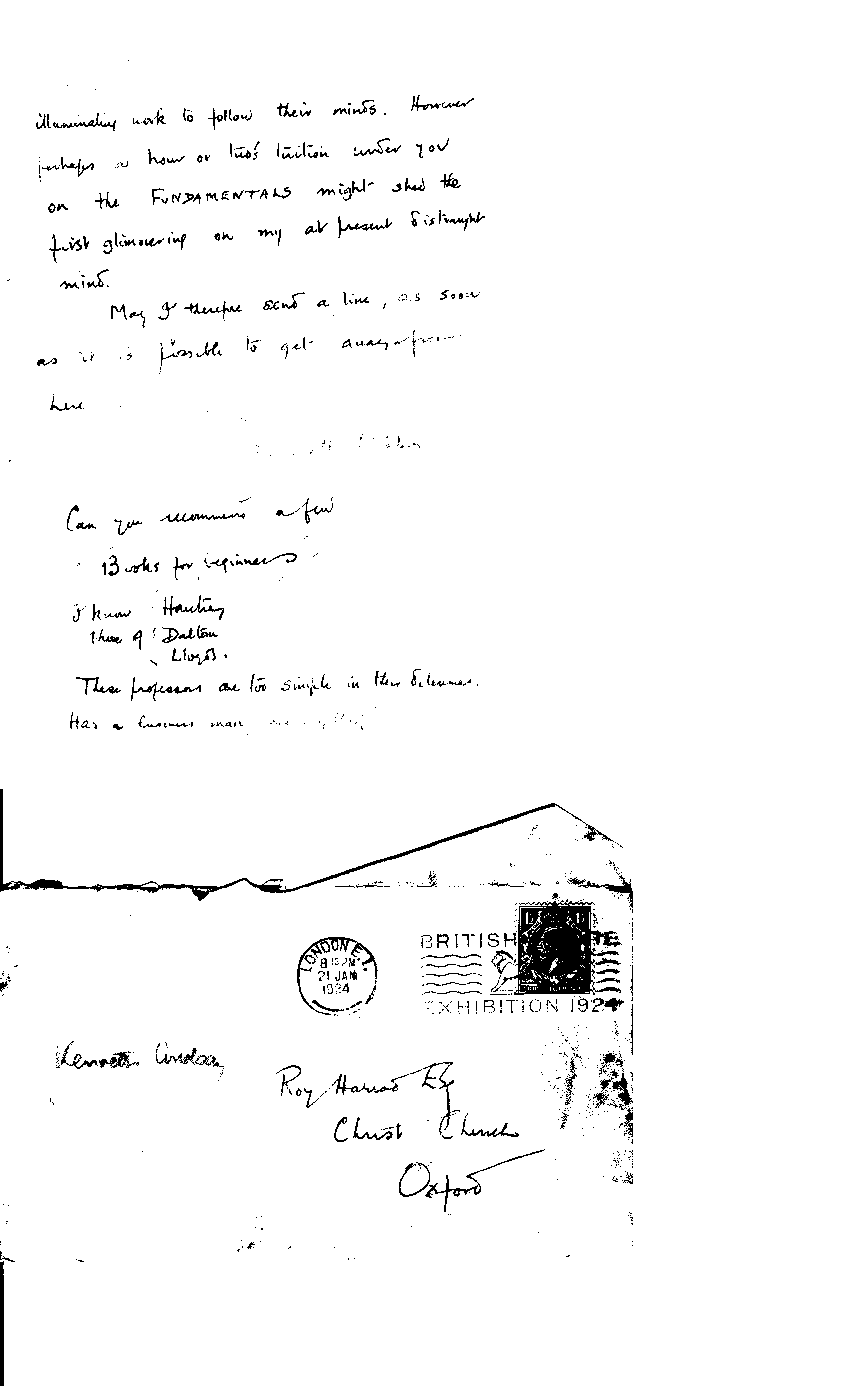 illuminating work to follow their minds. However
perhaps a hour or two's tuition under you
on the FUNDAMENTALS might shed the
first glimmering on my at present distraught
mind.
May I therefore send a line, as soon
as it is possible to get away from
here
Can you recommend a few
Books for beginners
I know Hawtrey
those of Dalton
Lloyds.
These professors are too simple in their
Has a business man
LONDON E.1.
8 15 PM
21 JAN
1924
BRITISH
EXHIBITION 1924
Kenneth Lindsay
Roy Harrod Esq
Christ Church
Oxford